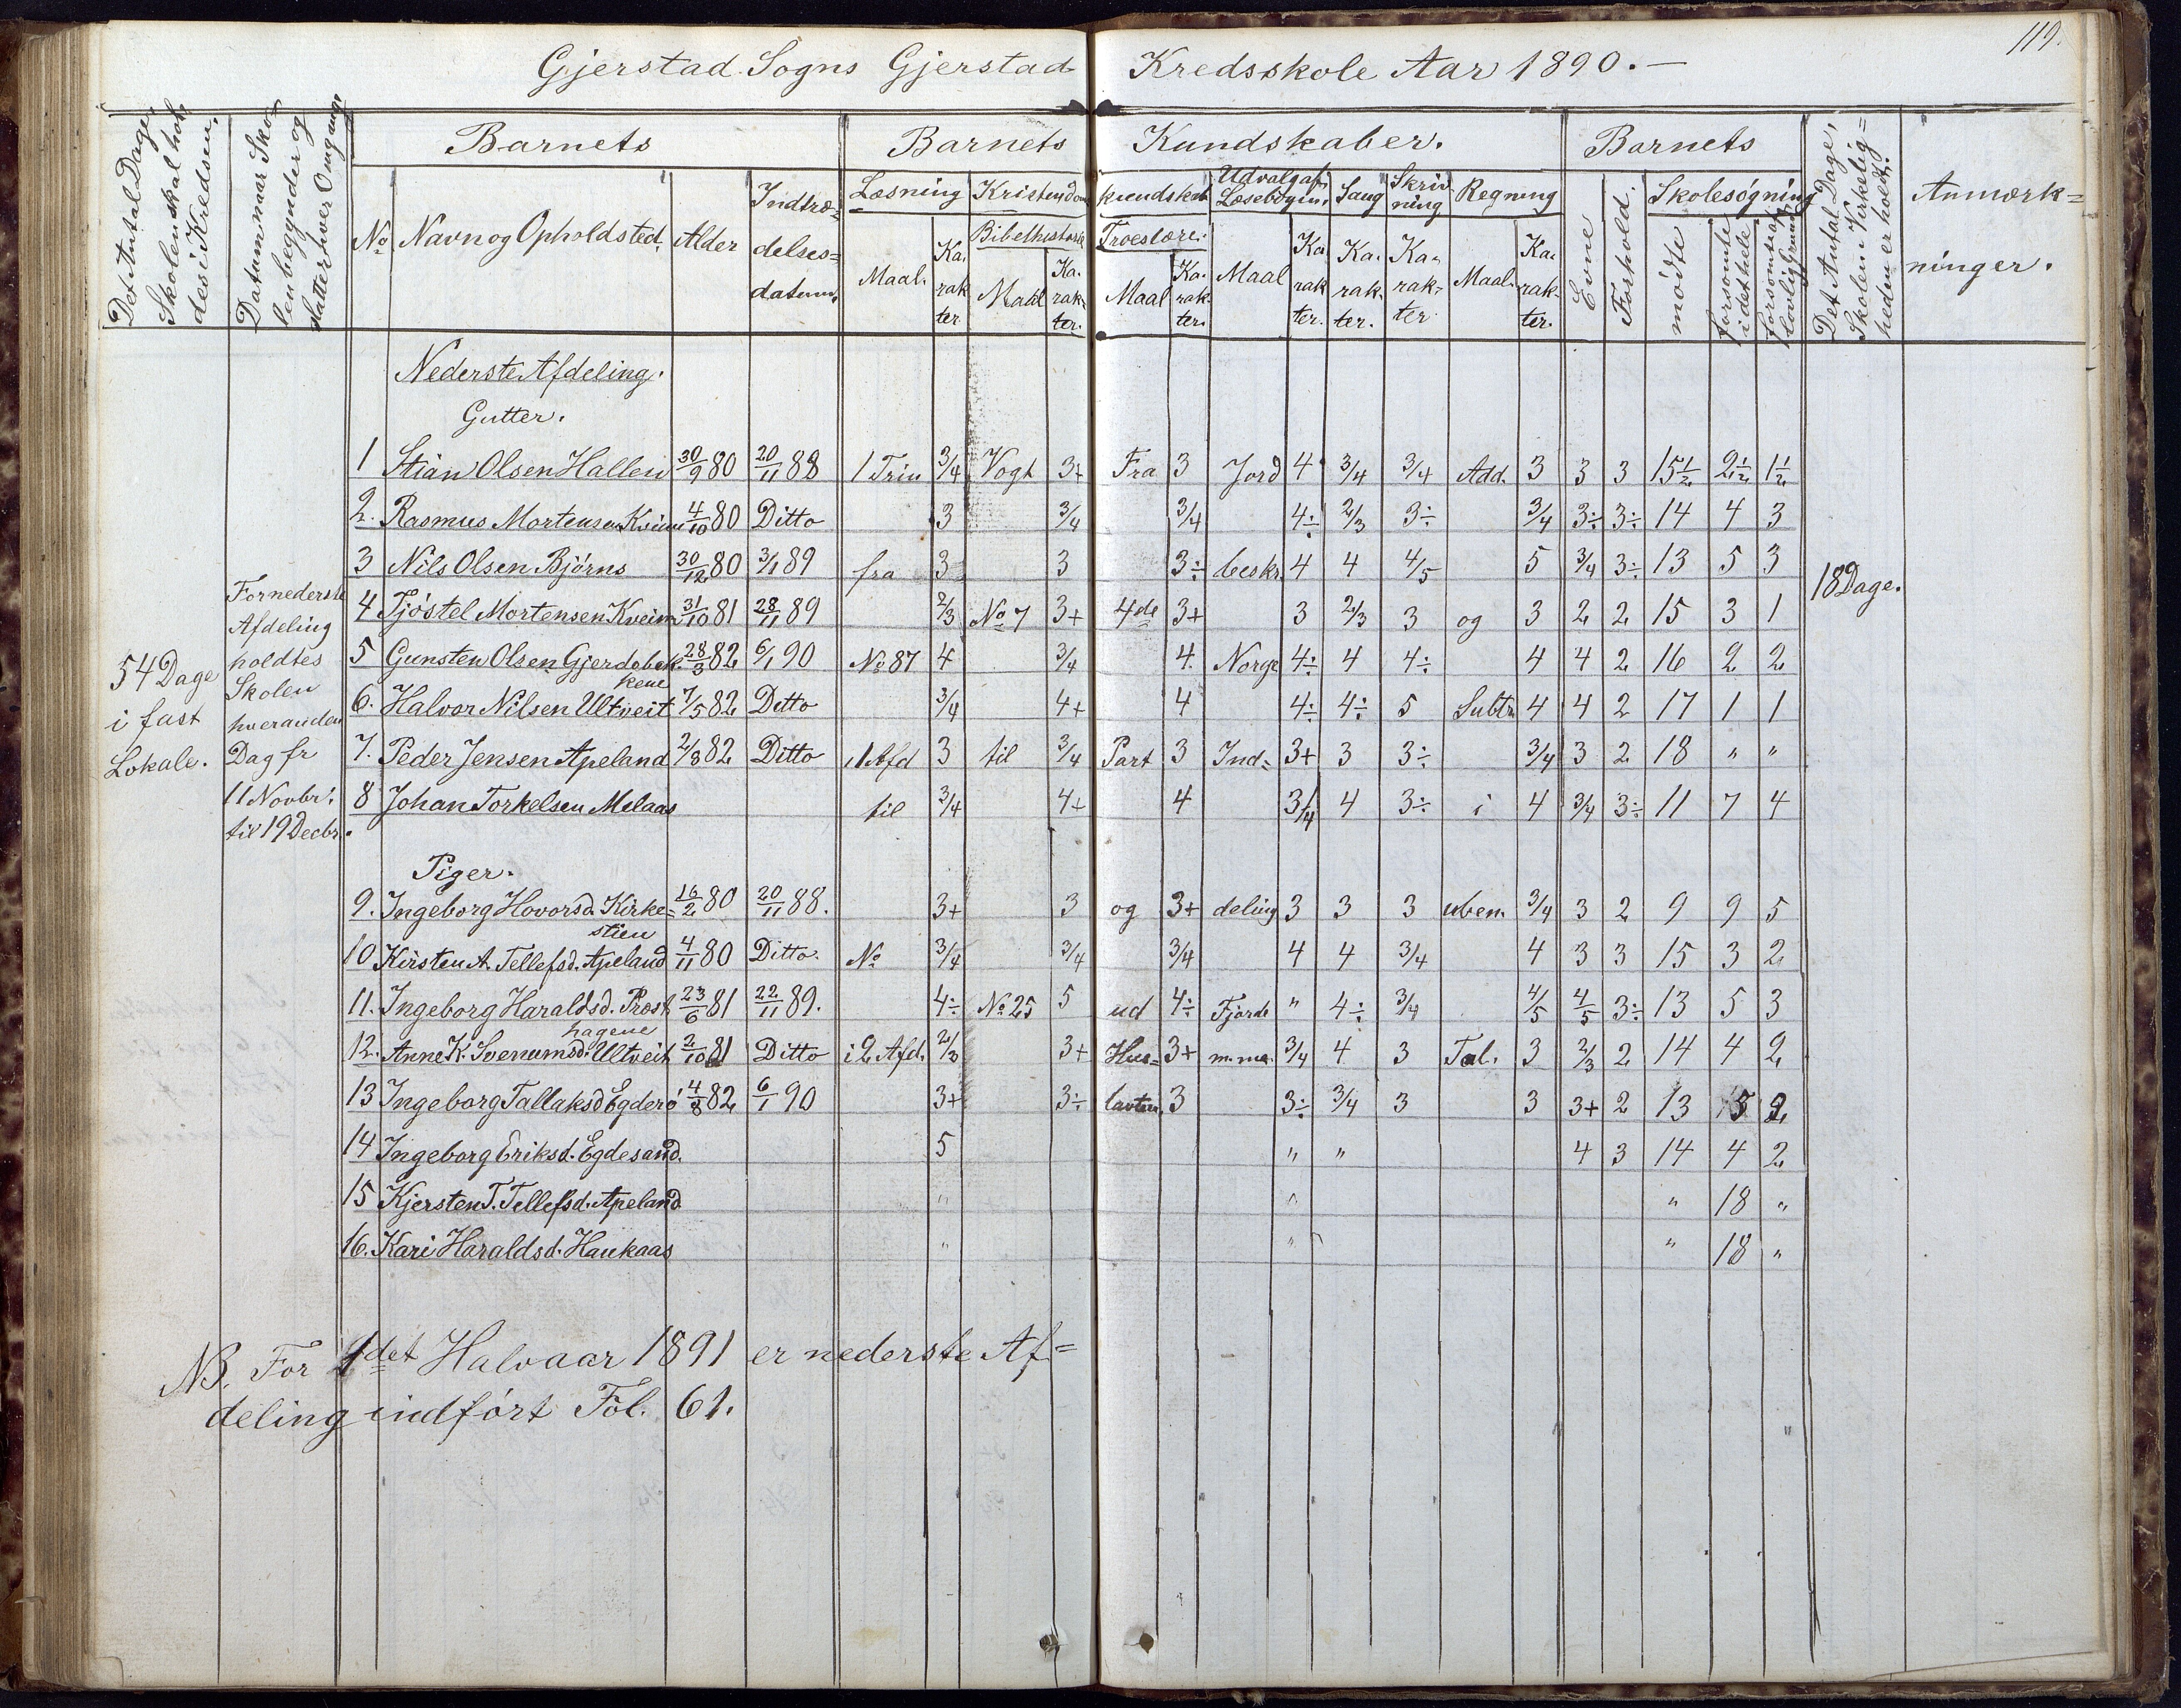 119.
Gjerstad Sogns Gjerstad Kredsskole Aar 1890.—
Det Antal Dage, Skolen skal holdes i Kredsen.
Datum naar Skolen begynder og slutter hver Omgang
Barnets
Barnets Kundskaber.
Barnets
Det Antal Dage, Skolen i Virkeligheden er holdt.
Anmærkninger.
No Navn og Opholdsted. Alder Indtrædelsesdatum.
Læsning Kristendomskundskab Udvalg af Læsebogen. Sang Skrivning Regning Evne Forhold. Skolesøgning
Bibelhistorie Troeslære.
Maal. Karakter Maal Karakter. Maal Karakter. Maal Karakter. Karakter. Karakter Maal. Karakter. mødte forsømte i det hele forsømt af lovlig Grund
Nederste Afdeling.
Gutter.
1 Stian Olsen Hallen 30/9 80 20/11 88 1 Trin 3/4 Vogt 3+ Fra 3 Jord 4 3/4 3/4 Add. 3 3 3 15½ 2½ 1½
2. Rasmus Mortensen Kveim 4/10 80 Ditto 3 3/4 3/4 4÷ 2/3 3÷ 3/4 3÷ 3÷ 14 4 3
3 Nils Olsen Bjørns 30/12 80 3/1 89 fra 3 3 3÷ beskr. 4 4 4/5 5 3/4 3÷ 13 5 3
4 Tjøstel Mortensen Kveim 31/10 81 28/11 89 2/3 No 7 3+ 4de 3+ 3 2/3 3 og 3 2 2 15 3 1
5 Gunsten Olsen Gjerdebekkene 28/3 82 6/1 90 No 87 4 3/4 4. Norge 4÷ 4 4÷ 4 4 2 16 2 2
6. Halvor Nilsen Ultveit 7/5 82 Ditto 3/4 4+ 4 4÷ 4÷ 5 Subtr. 4 4 2 17 1 1
7. Peder Jensen Apeland 2/8 82 Ditto 1 Afd 3 til 3/4 Part 3 Ind= 3+ 3 3÷ 3/4 3 2 18 " "
8 Johan Torkelsen Melaas til 3/4 4+ 4 3/4 4 3÷ i 4 3/4 3÷ 11 7 4
54 Dage
i fast
Lokale.
For nederste
Afdeling
holdtes
Skolen
hveranden
Dag fr
11 Novbr.
til 19 Decbr.
18 Dage.
Piger.
9. Ingeborg Hovorsd. Kirke=stien 16/2 80 20/11 88. 3+ 3 og 3+ deling 3 3 3 uben. 3/4 3 2 9 9 5
10 Kirsten A. Tellefsd. Apeland 4/11 80 Ditto. No 3/4 3/4 3/4 4 4 3/4 4 3 3 15 3 2
11. Ingeborg Haraldsd. Prosthagene 23/6 81 22/11 89. 4÷ No 25 5 ud 4÷ Fjorde " 4÷ 3/4 4/5 4/5 3÷ 13 5 3
12. Anne K. Svenumsd. Ultveit 2/10 81 Ditto i 2 Afd. 2/3 3+ Hus= 3+ m.m. 3/4 4 3 Tal. 3 2/3 2 14 4 2
13 Ingeborg Tallaksd Egderø 4/8 82 6/1 90 3+ 3÷ tavlen 3 3÷ 3/4 3 3 3+ 2 13 5 2
14 Ingeborg Eriksd. Egdesand. 5 " " 4 3 14 4 2
15 Kjersten T. Tellefsd. Apeland " " " 18 "
16. Kari Haraldsd. Haukaas " " " 18 "
NB. For 1det Halvaar 1891 er nederste Af=
deling indført Fol. 61.